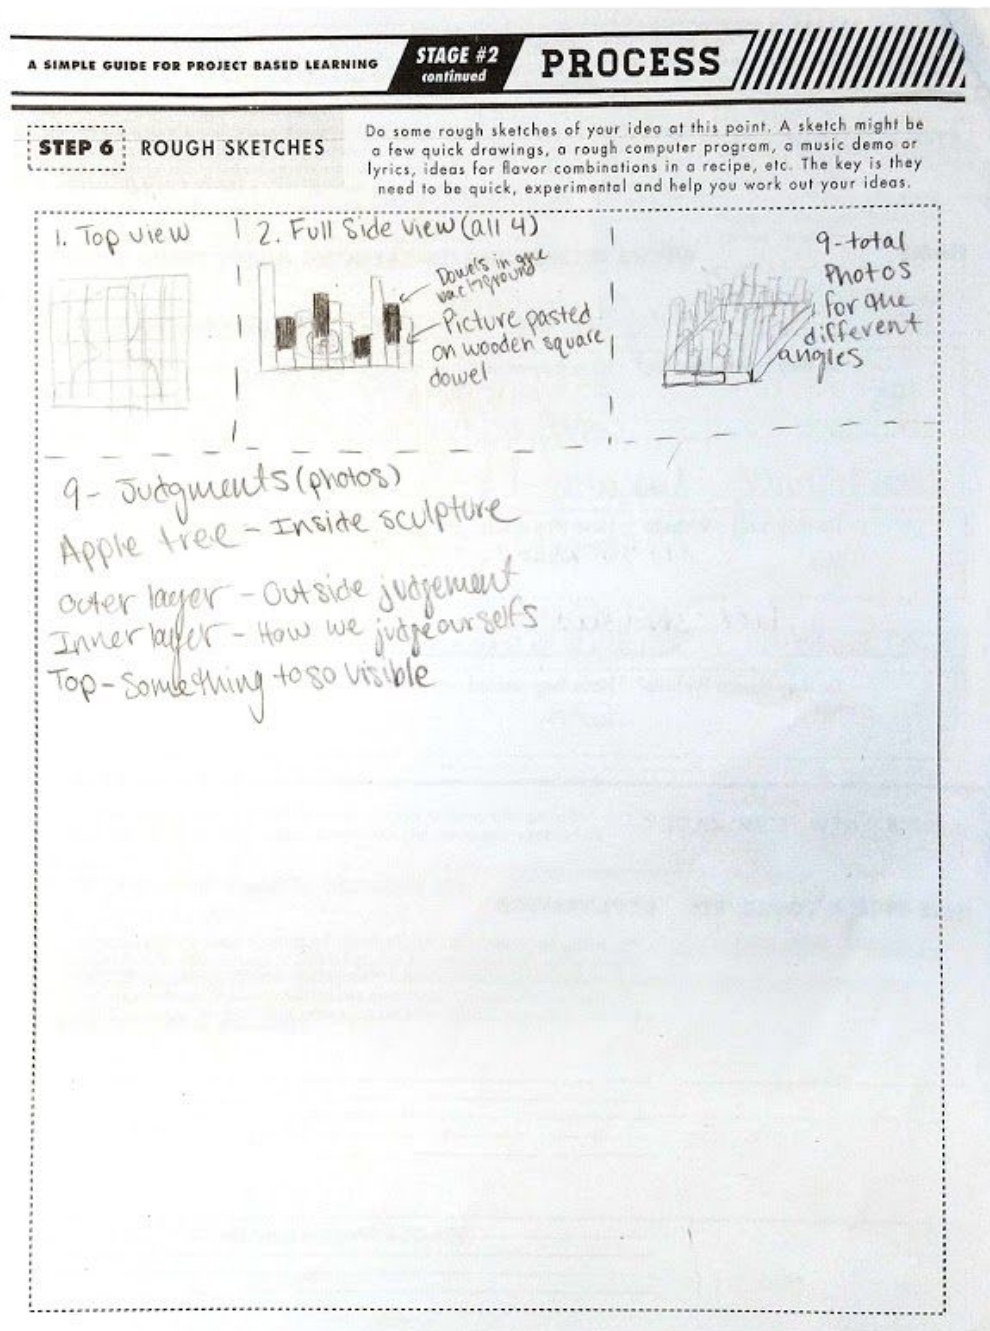 A SIMPLE GUIDE FOR PROJECT BASED LEARNING
STAGE #2
continued
PROCESS
STEP 6
ROUGH SKETCHES
Do some rough sketches of your idea at this point. A sketch might be
a few quick drawings, a rough computer program, a music demo or
lyrics, ideas for flavor combinations in a recipe, etc. The key is they
need to be quick, experimental and help you work out your ideas.
1. Top view
2. Full Side View (all 4)
Dowels in the
background
Picture pasted
on wooden square
dowel
9-total
Photos
for the
different
angles
9- Judgments (photos)
Apple tree - Inside sculpture
Outer layer - Outside judgement
Inner layer - How we judge ourselfs
Top - Something to so visible